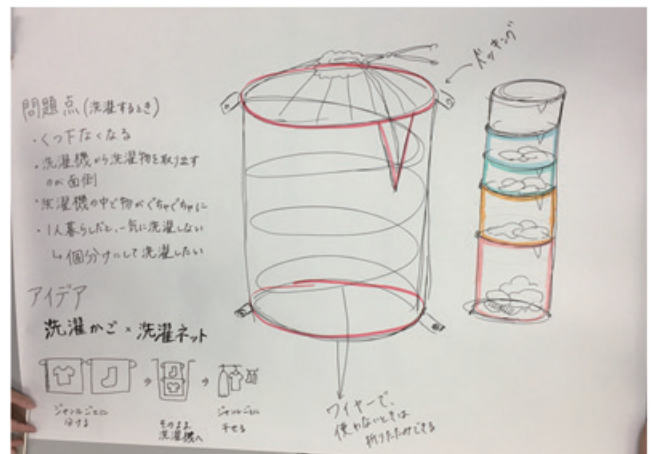 問題点(洗濯するとき)
・くつ下なくなる
・洗濯機から洗濯物を取り出す
のが面倒
・洗濯機の中で物がぐちゃぐちゃに
・1人暮らしだと、一気に洗濯しない
↳個分けにして洗濯したい
アイデア
洗濯かご×洗濯ネット
ジャンルごとに
分ける
そのまま
洗濯機へ
ジャンルごとに
干せる
ドッキング
ワイヤーで、
使わないときは
折りたたみできる